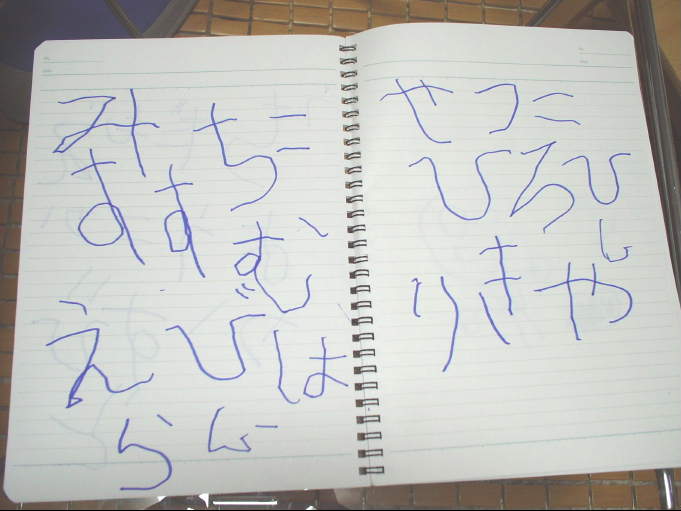 みちこ
すすむ
えびは
ら
せつこ
ひろひ
し
りきや